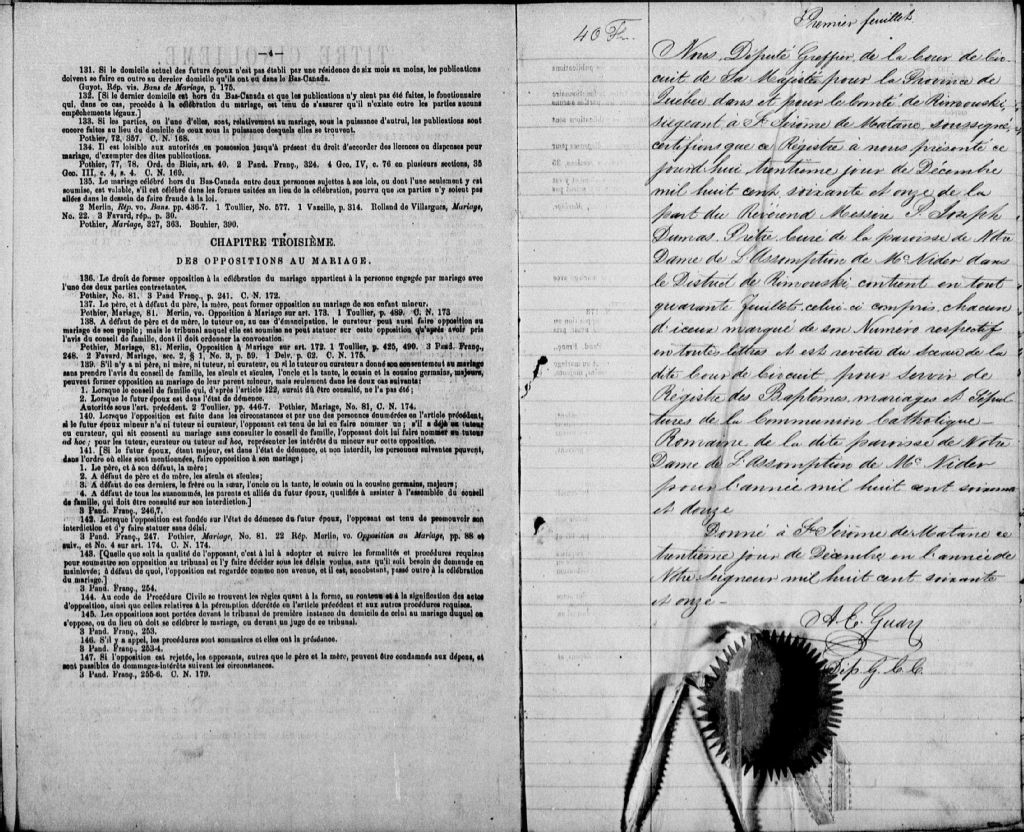 —4—
131. Si le domicile actuel des futurs époux n'est pas établi par une résidence de six mois au moins, les publications
doivent se faire en outre au dernier domicile qu'ils ont eu dans le Bas-Canada.
Guyot. Rép. vis. Bans de Mariage, p. 175.
132. [Si le dernier domicile est hors du Bas-Canada et que les publications n'y aient pas été faites, le fonctionnaire
qui, dans ce cas, procède à la célébration du mariage, est tenu de s'assurer qu'il n'existe entre les parties aucuns
empêchements légaux.]
133. Si les parties, ou l'une d'elles, sont, relativement au mariage, sous la puissance d'autrui, les publications sont
encore faites au lieu du domicile de ceux sous la puissance desquels elles se trouvent.
Pothier, 72, 357. C. N. 168.
134. Il est loisible aux autorités en possession jusqu'à présent du droit d'accorder des licences ou dispenses pour
mariage, d'exempter des dites publications.
Pothier, 77, 78. Ord. de Blois, art. 40. 2 Pand. Franç., 324. 4 Geo, IV, c. 76 en plusieurs sections, 35
Geo. III, c. 4, s. 4. C. N. 169.
135. Le mariage célébré hors du Bas-Canada entre deux personnes sujettes à ses lois, ou dont l'une seulement y est
soumise, est valable, s'il est célébré dans les formes usitées au lieu de la célébration, pourvu que les parties n'y soient pas
allées dans le dessein de faire fraude à la loi.
2 Merlin, Rép. vo. Bans. pp. 436-7. 1 Toullier, No. 577. 1 Vazeille, p. 314. Rolland de Villargues, Mariage,
No. 22. 3 Favard, rép., p. 30.
Pothier, Mariage, 327, 363. Bouhier, 390.
CHAPITRE TROISIÈME.
DES OPPOSITIONS AU MARIAGE.
136. Le droit de former opposition à la célébration du mariage appartient à la personne engagée par mariage avec
l'une des deux parties contractantes.
Pothier, No. 81. 3 Pand Franç., p. 241. C. N. 172.
137. Le père, et à défaut du père, la mère, peut former opposition au mariage de son enfant mineur.
Pothier, Mariage, 81. Merlin, vo. Opposition à Mariage sur art. 173. 1 Toullier, p. 489. C. N. 173
138. A défaut de père et de mère, le tuteur ou, au cas d'émancipation, le curateur peut aussi faire opposition au
mariage de son pupile; mais le tribunal auquel elle est soumise ne peut statuer sur cette opposition qu'après avoir pris
l'avis du conseil de famille, dont il doit ordonner la convocation.
Pothier, Mariage, 81. Merlin, Opposition à Mariage sur art. 172. 1 Toullier, p. 425, 490. 3 Pand. Franç.,
248. 2 Favard, Mariage, sec. 2, § 1, No. 3, p. 59. 1 Delv. p. 62. C. N. 175.
139. S'il n'y a ni père, ni mère, ni tuteur, ni curateur, ou si le tuteur ou curateur a donné son consentement au mariage
sans prendre l'avis du conseil de famille, les aïeuls et aïeules, l'oncle et la tante, le cousin et la cousine germains, majeurs,
peuvent former opposition au mariage de leur parent mineur, mais seulement dans les deux cas suivants:
1. Lorsque le conseil de famille qui, d'après l'article 122, aurait dû être consulté, ne l'a pas été;
2. Lorsque le futur époux est dans l'état de démence.
Autorités sous l'art. précédent. 2 Toullier, pp. 446-7. Pothier, Mariage, No. 81, C. N. 174.
140. Lorsque l'opposition est faite dans les circonstances et par une des personnes énoncées en l'article précédent,
si le futur époux mineur n'a ni tuteur ni curateur, l'opposant est tenu de lui en faire nommer un; s'il a déjà un tuteur
ou curateur, qui ait consenti au mariage sans consulter le conseil de famille, l'opposant doit lui faire nommer un tuteur
ad hoc; pour les tuteur, curateur ou tuteur ad hoc, représenter les intérêts du mineur sur cette opposition.
141. [Si le futur époux, étant majeur, est dans l'état de démence, et non interdit, les personnes suivantes peuvent,
dans l'ordre où elles sont mentionnées, faire opposition à son mariage;
1. Le père, et à son défaut, la mère;
2. A défaut de père et de mère, les aïeuls et aïeules;
3. A défaut de ces derniers, le frère ou la sœur, l'oncle ou la tante, le cousin ou la cousine germains, majeurs;
4. A défaut de tous les susnommés, les parents et alliés du futur époux, qualifiés à assister à l'assemblée du conseil
de famille, qui doit être consulté sur son interdiction.]
3 Pand. Franç., 246,7.
142. Lorsque l'opposition est fondée sur l'état de démence du futur époux, l'opposant est tenu de promouvoir son
interdiction et d'y faire statuer sans délai.
3 Pand. Franç., 247. Pothier, Mariage, No. 81. 22 Rép. Merlin, vo. Opposition au Mariage, pp. 88 et
suiv., et No. 4 sur art. 174. C. N. 174.
143. [Quelle que soit la qualité de l'opposant, c'est à lui à adopter et suivre les formalités et procédures requises
pour soumettre son opposition au tribunal et l'y faire décider sous les délais voulus, sans qu'il soit besoin de demande en
mainlevée; à défaut de quoi, l'opposition est regardée comme non avenue, et il est, nonobstant, passé outre à la célébration
du mariage.]
3 Pand. Franç., 254.
144. Au code de Procédure Civile se trouvent les règles quant à la forme, au contenu et à la signification des actes
d'opposition, ainsi que celles relatives à la péremption décrétée en l'article précédent et aux autres procédures requises.
145. Les oppositions sont portées devant le tribunal de première instance du domicile de celui au mariage duquel on
s'oppose, ou du lieu où doit se célébrer le mariage, ou devant un juge de ce tribunal.
3 Pand. Franç., 253.
146. S'il y a appel, les procédures sont sommaires et elles ont la préséance.
3 Pand. Franç., 253-4.
147. Si l'opposition est rejetée, les opposants, autres que le père et la mère, peuvent être condamnés aux dépens, et
sont passibles de dommages-intérêts suivant les circonstances.
3 Pand. Franç., 255-6. C. N. 179.
40 F
Premier feuillet
Nous, Député Greffier de la Cour de Cir-
cuit de Sa Majesté pour la Province de
Québec dans et pour le comté de Rimouski,
siégeant à St Jérôme de Matane, soussigné,
certifions que ce Registre à nous présenté ce
jourd'hui trentième jour de Décembre
mil huit cent soixante et onze de la
part du Révérend Messire P. Joseph
Dumas Prêtre Curé de la paroisse de Notre
Dame de L'Assomption de McNider dans
le District de Rimouski contient en tout
quarante feuillets, celui ci compris, chacun
d'iceux marqué de son Numéro respectif
en toutes lettres et est revêtu du sceau de la
dite Cour de Circuit, pour servir de
Régistre des Baptêmes, mariages et Sépul-
tures de la Communion Catholique-
Romaine de la dite paroisse de Notre
Dame de L'Assomption de McNider
pour l'année mil huit cent soixante
et douze
Donné à St Jérôme de Matane ce
trentième jour de Décembre en l'année de
Notre Seigneur mil huit cent soixante
et onze –
Dep. G. C. C.